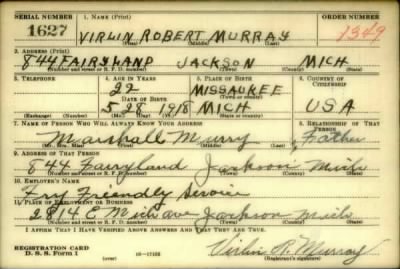 SERIAL NUMBER 1. NAME (Print) ORDER NUMBER
1627 VIRLIN ROBERT MURRAY 1349
(First) (Middle) (Last)
2. ADDRESS (Print)
844 FAIRYLAND JACKSON MICH
(Number and street or R. F. D. number) (Town) (County) (State)
3. TELEPHONE 4. AGE IN YEARS 5. PLACE OF BIRTH 6. COUNTRY OF CITIZENSHIP
22 MISSAUKEE
(Town or county)
DATE OF BIRTH
5 28 1918 MICH USA
(Exchange) (Number) (Mo.) (Day) (Yr.) (State or country)
7. NAME OF PERSON WHO WILL ALWAYS KNOW YOUR ADDRESS 8. RELATIONSHIP OF THAT PERSON
Marshall Murry Father
(Mr., Mrs., Miss) (First) (Middle) (Last)
9. ADDRESS OF THAT PERSON
844 Fairyland Jackson Mich
(Number and street or R. F. D. number) (Town) (County) (State)
10. EMPLOYER'S NAME
Friendly Service
11. PLACE OF EMPLOYMENT OR BUSINESS
2814 E Mich ave Jackson Mich
(Number and street or R. F. D. number) (Town) (County) (State)
I AFFIRM THAT I HAVE VERIFIED ABOVE ANSWERS AND THAT THEY ARE TRUE.
REGISTRATION CARD
D. S. S. Form 1 (over) 16—17105 Virlin R. Murray
(Registrant's signature)